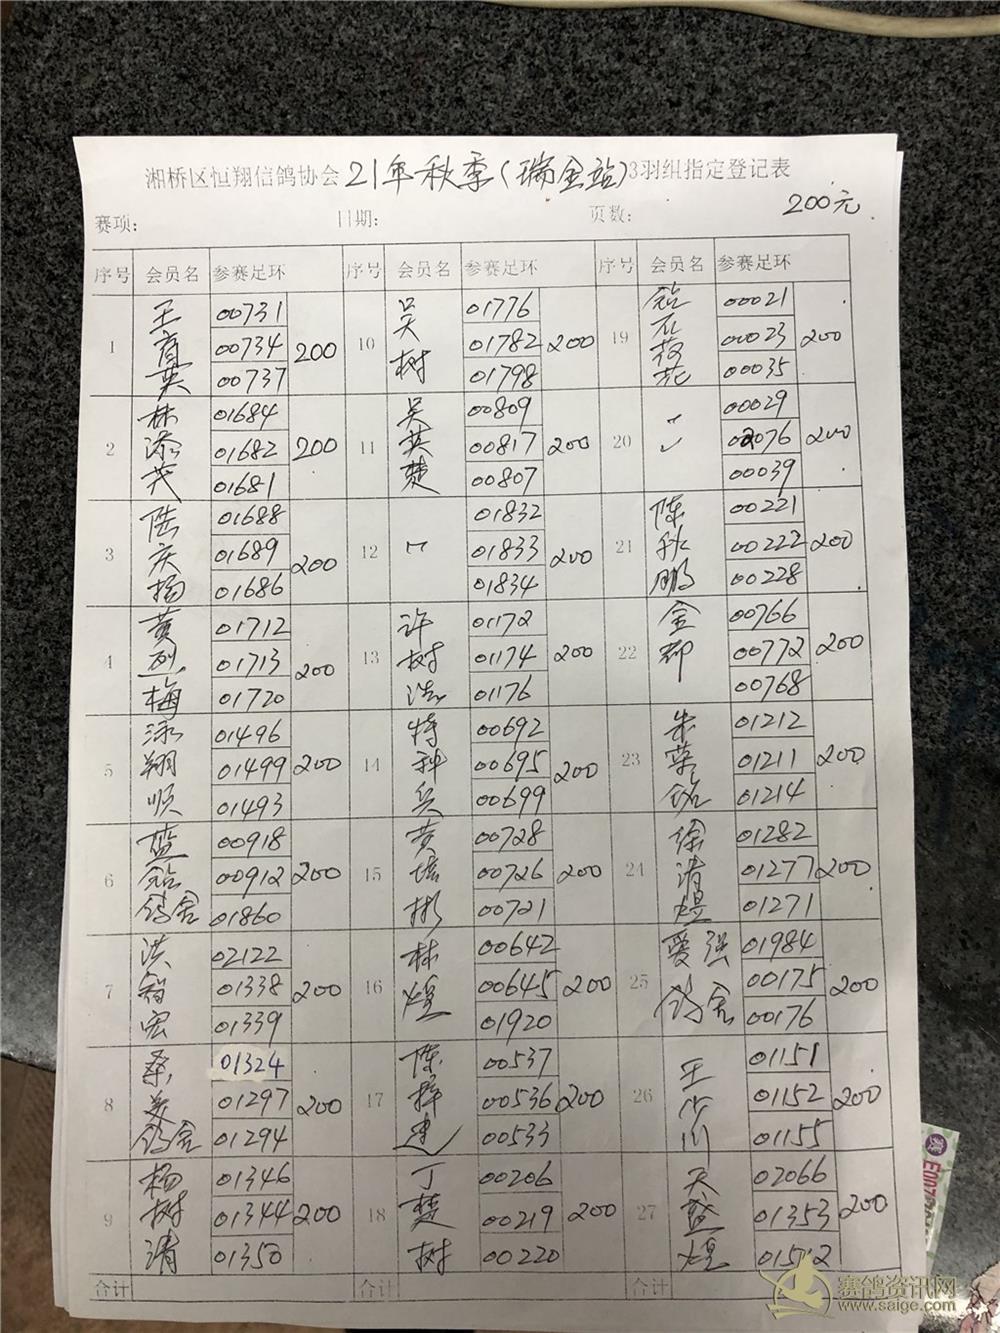 湘桥区恒翔信鸽协会 21年秋季(瑞金站)3羽组指定登记表
200元
赛项: 日期: 页数:
序号 会员名 参赛足环 序号 会员名 参赛足环 序号 会员名 参赛足环
1 王育英 00731 00734 00737 200
10 吴树 01776 01782 01798 200
19 钻石荷花 00021 00023 00035 200
2 林添茂 01684 01682 01681 200
11 吴英楚 00809 00817 00807 200
20 00029 00039 200
3 陆庆扬 01688 01689 01686 200
12 01832 01833 01834 200
21 陈秋鹏 00221 00222 00228 200
4 黄烈梅 01712 01713 01720 200
13 许树浩 01172 01174 01176 200
22 金都 00766 00772 00768 200
5 泳翔顺 01496 01499 01493 200
14 特种兵 00692 00695 00699 200
23 朱荣铭 01212 01211 01214 200
6 蓝钻鸽舍 00918 00912 01860 200
15 黄培彬 00728 00726 00721 200
24 徐清煜 01282 01277 01271 200
7 洪智宏 02122 01338 01339 200
16 林煌 00642 00645 01920 200
25 爱强鸽舍 01984 00175 00176 200
8 鸽舍 01324 01297 01294 200
17 陈梓建 00537 00536 00533 200
26 王少川 01151 01152 01155 200
9 杨树清 01346 01344 01350 200
18 丁楚树 00206 00219 00220 200
27 天盛煌 02066 01353 200
合计 合计 合计
赛鸽资讯网
www.saige.com